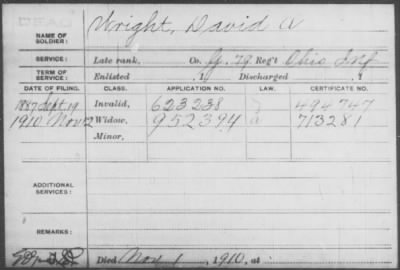 DEAD
NAME OF SOLDIER: Wright, David A
SERVICE: Late rank, Co. G, 79 Reg't Ohio Inf
TERM OF SERVICE: Enlisted , 1 Discharged , 1
DATE OF FILING. CLASS. APPLICATION NO. CERTIFICATE NO.
1887 Sept 19 Invalid, 623238 494747
1910 Nov 12 Widow, 952394 713281
Minor,
ADDITIONAL SERVICES:
REMARKS:
Died Nov 1, 1910, at